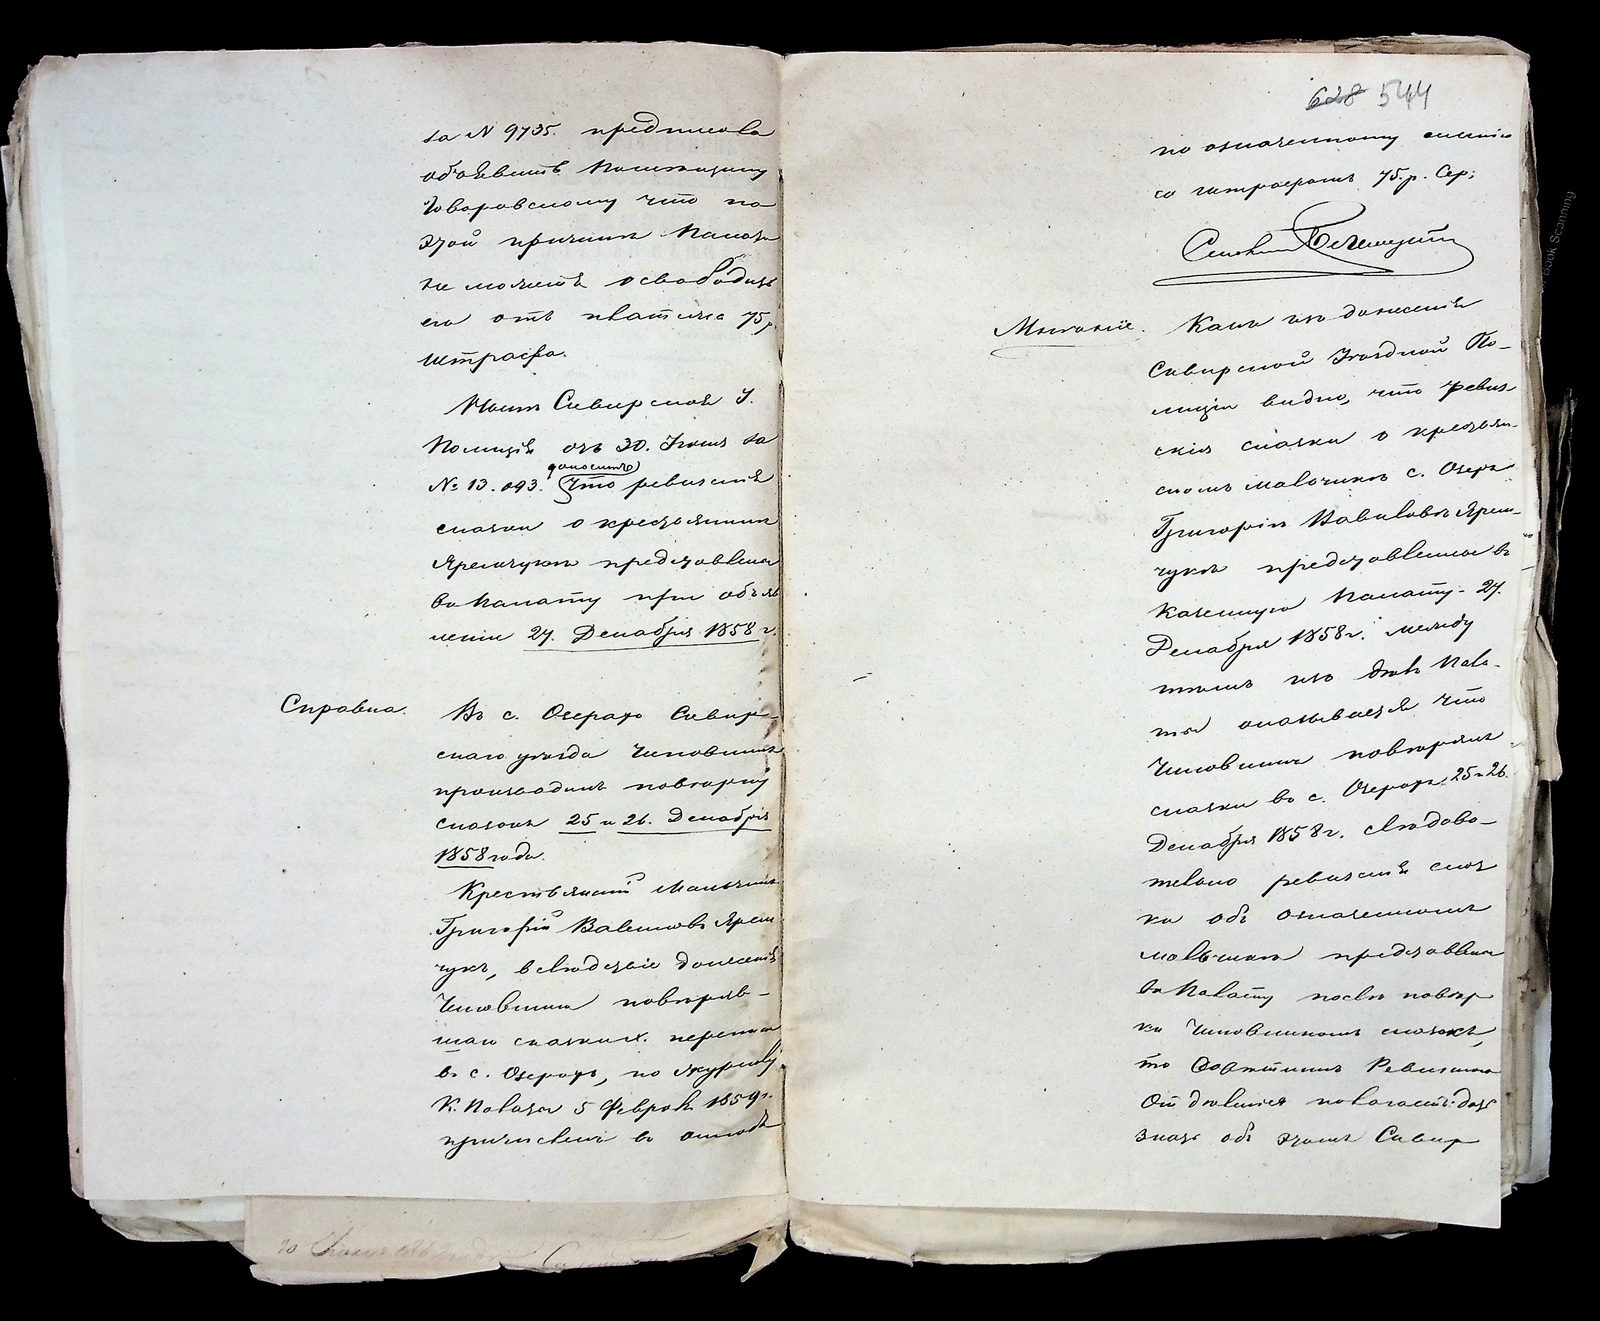 за N 9735. предписова
объявить Помещику
Говоровскому что по
этой причине Палата
не можетъ освободить
его отъ платежа 75 р
штрафа.
Ныне Сквирская У.
Полиція отъ 30. Іюня за
№ 13.093. доноситъ что ревизская
сказки о крестьянине
Яремчуке представлена
въ Палату при объяв
леніи 27. Декабря 1858 г.
Справка. Въ с. Озерахъ Сквир-
скаго уезда Чиновникъ
производилъ повторку
сказокъ 25 и 26. Декабря
1858 года.
Крестьянскій мальчикъ
Григорій Вавиловъ Ярем
чукъ, вследствіе донесенія
Чиновника поверяв-
шаго сказки х. перепис
въ с. Озерахъ, по журналу
К. Палаты 5 Февраля 1859 г.
причисленъ въ окладъ
628 544
по означенному именію
со штрафомъ 75. р. Сер;
Мненіе. Какъ изъ донесенія
Сквирской Уездной По-
лиціи видно, что ревиз-
скія сказки о крестьян-
скомъ мальчике с. Озеръ
Григоріи Вавилове Ярем-
чуке представлены въ
Казенную Палату 27.
Декабря 1858 г. между
темъ изъ делъ Пала-
ты оказывается что
Чиновникъ поверялъ
сказки въ с. Озерахъ 25 и 26.
Декабря 1858 г. следова-
тельно ревизская сказ
ка объ означенномъ
мальчике представлена
въ Палату после повер
ки Чиновникомъ сказокъ,
то Ревизское
Отделеніе полагаетъ: дать
знать объ этомъ Сквир
Book Scanning